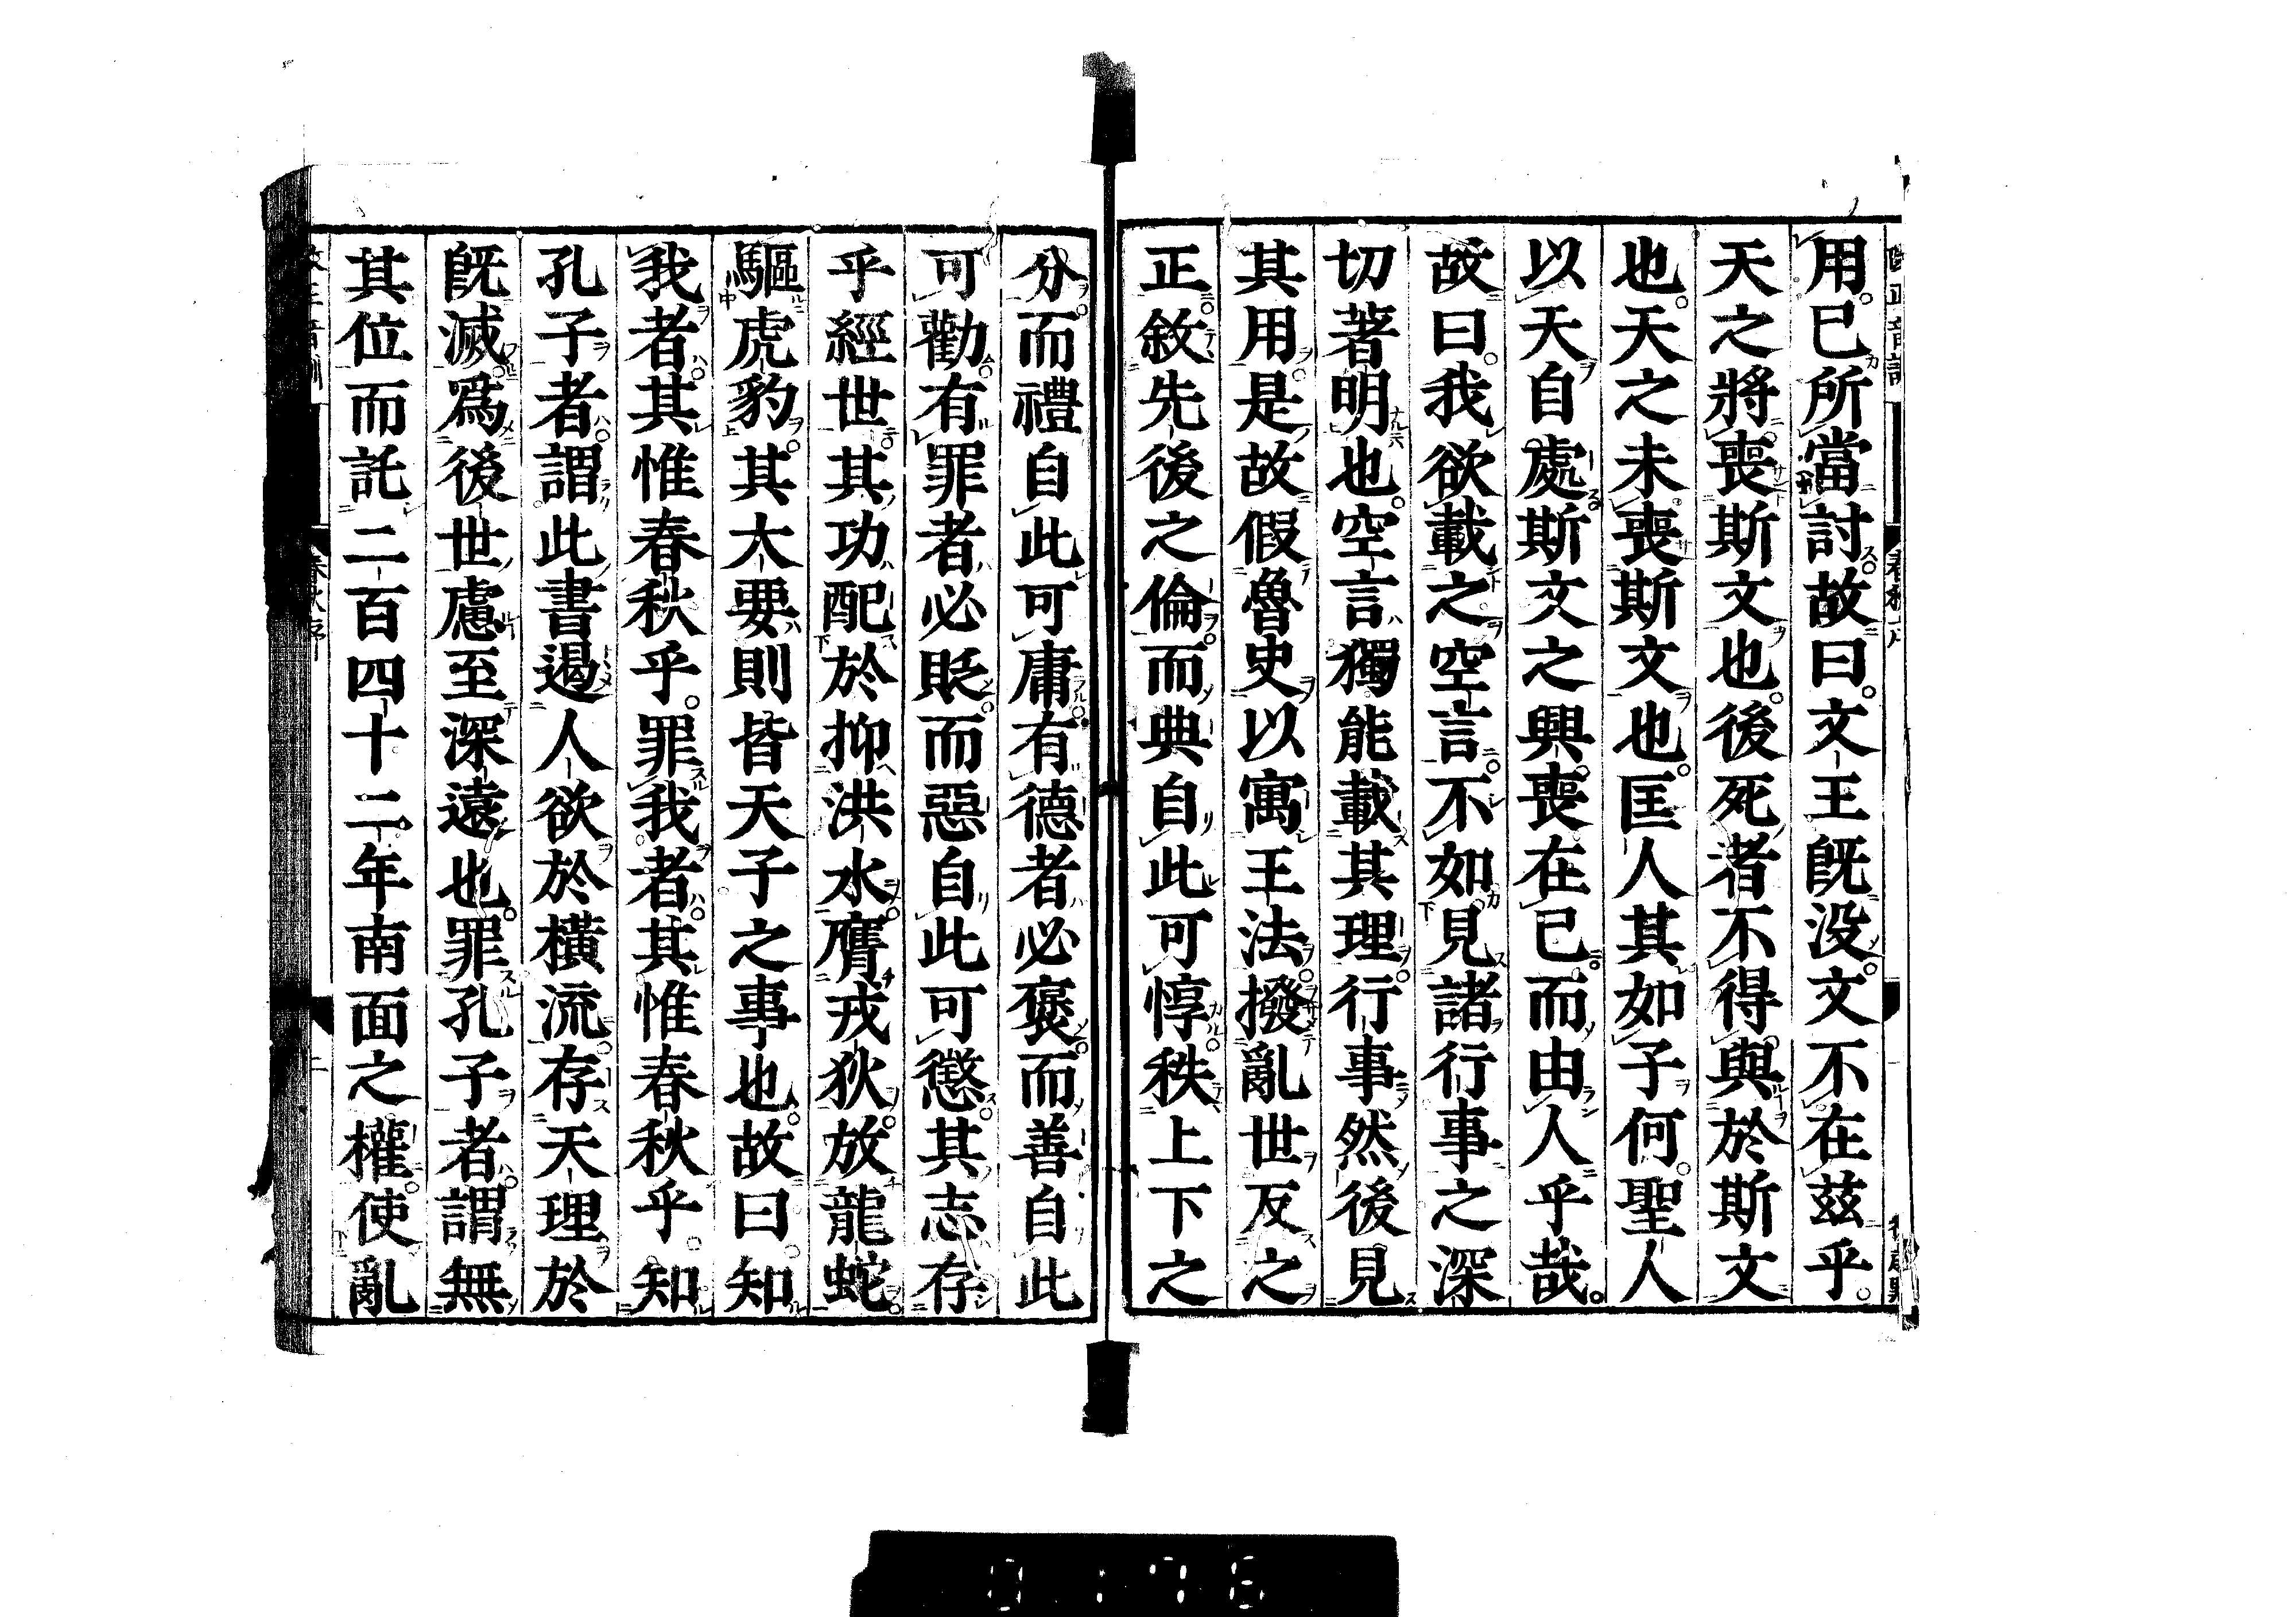 用已所當討故曰文王旣没文不在茲乎
天之將喪斯文也後死者不得與於斯文
也天之未喪斯文也匡人其如子何聖人
以天自處斯文之興喪在已而由人乎哉
故曰我欲載之空言不如見諸行事之深
切著明也空言獨能載其理行事然後見
其用是故假魯史以寓王法撥亂世反之
正敘先後之倫而典自此可惇秩上下之
分而禮自此可庸有德者必褒而善自此
可勸有罪者必貶而惡自此可懲其志存
乎經世其功配於抑洪水膺戎狄放龍蛇
驅虎豹其大要則皆天子之事也故曰知
我者其惟春秋乎罪我者其惟春秋乎知
孔子者謂此書遏人欲於橫流存天理於
旣滅爲後世慮至深遠也罪孔子者謂無
其位而託二百四十二年南面之權使亂